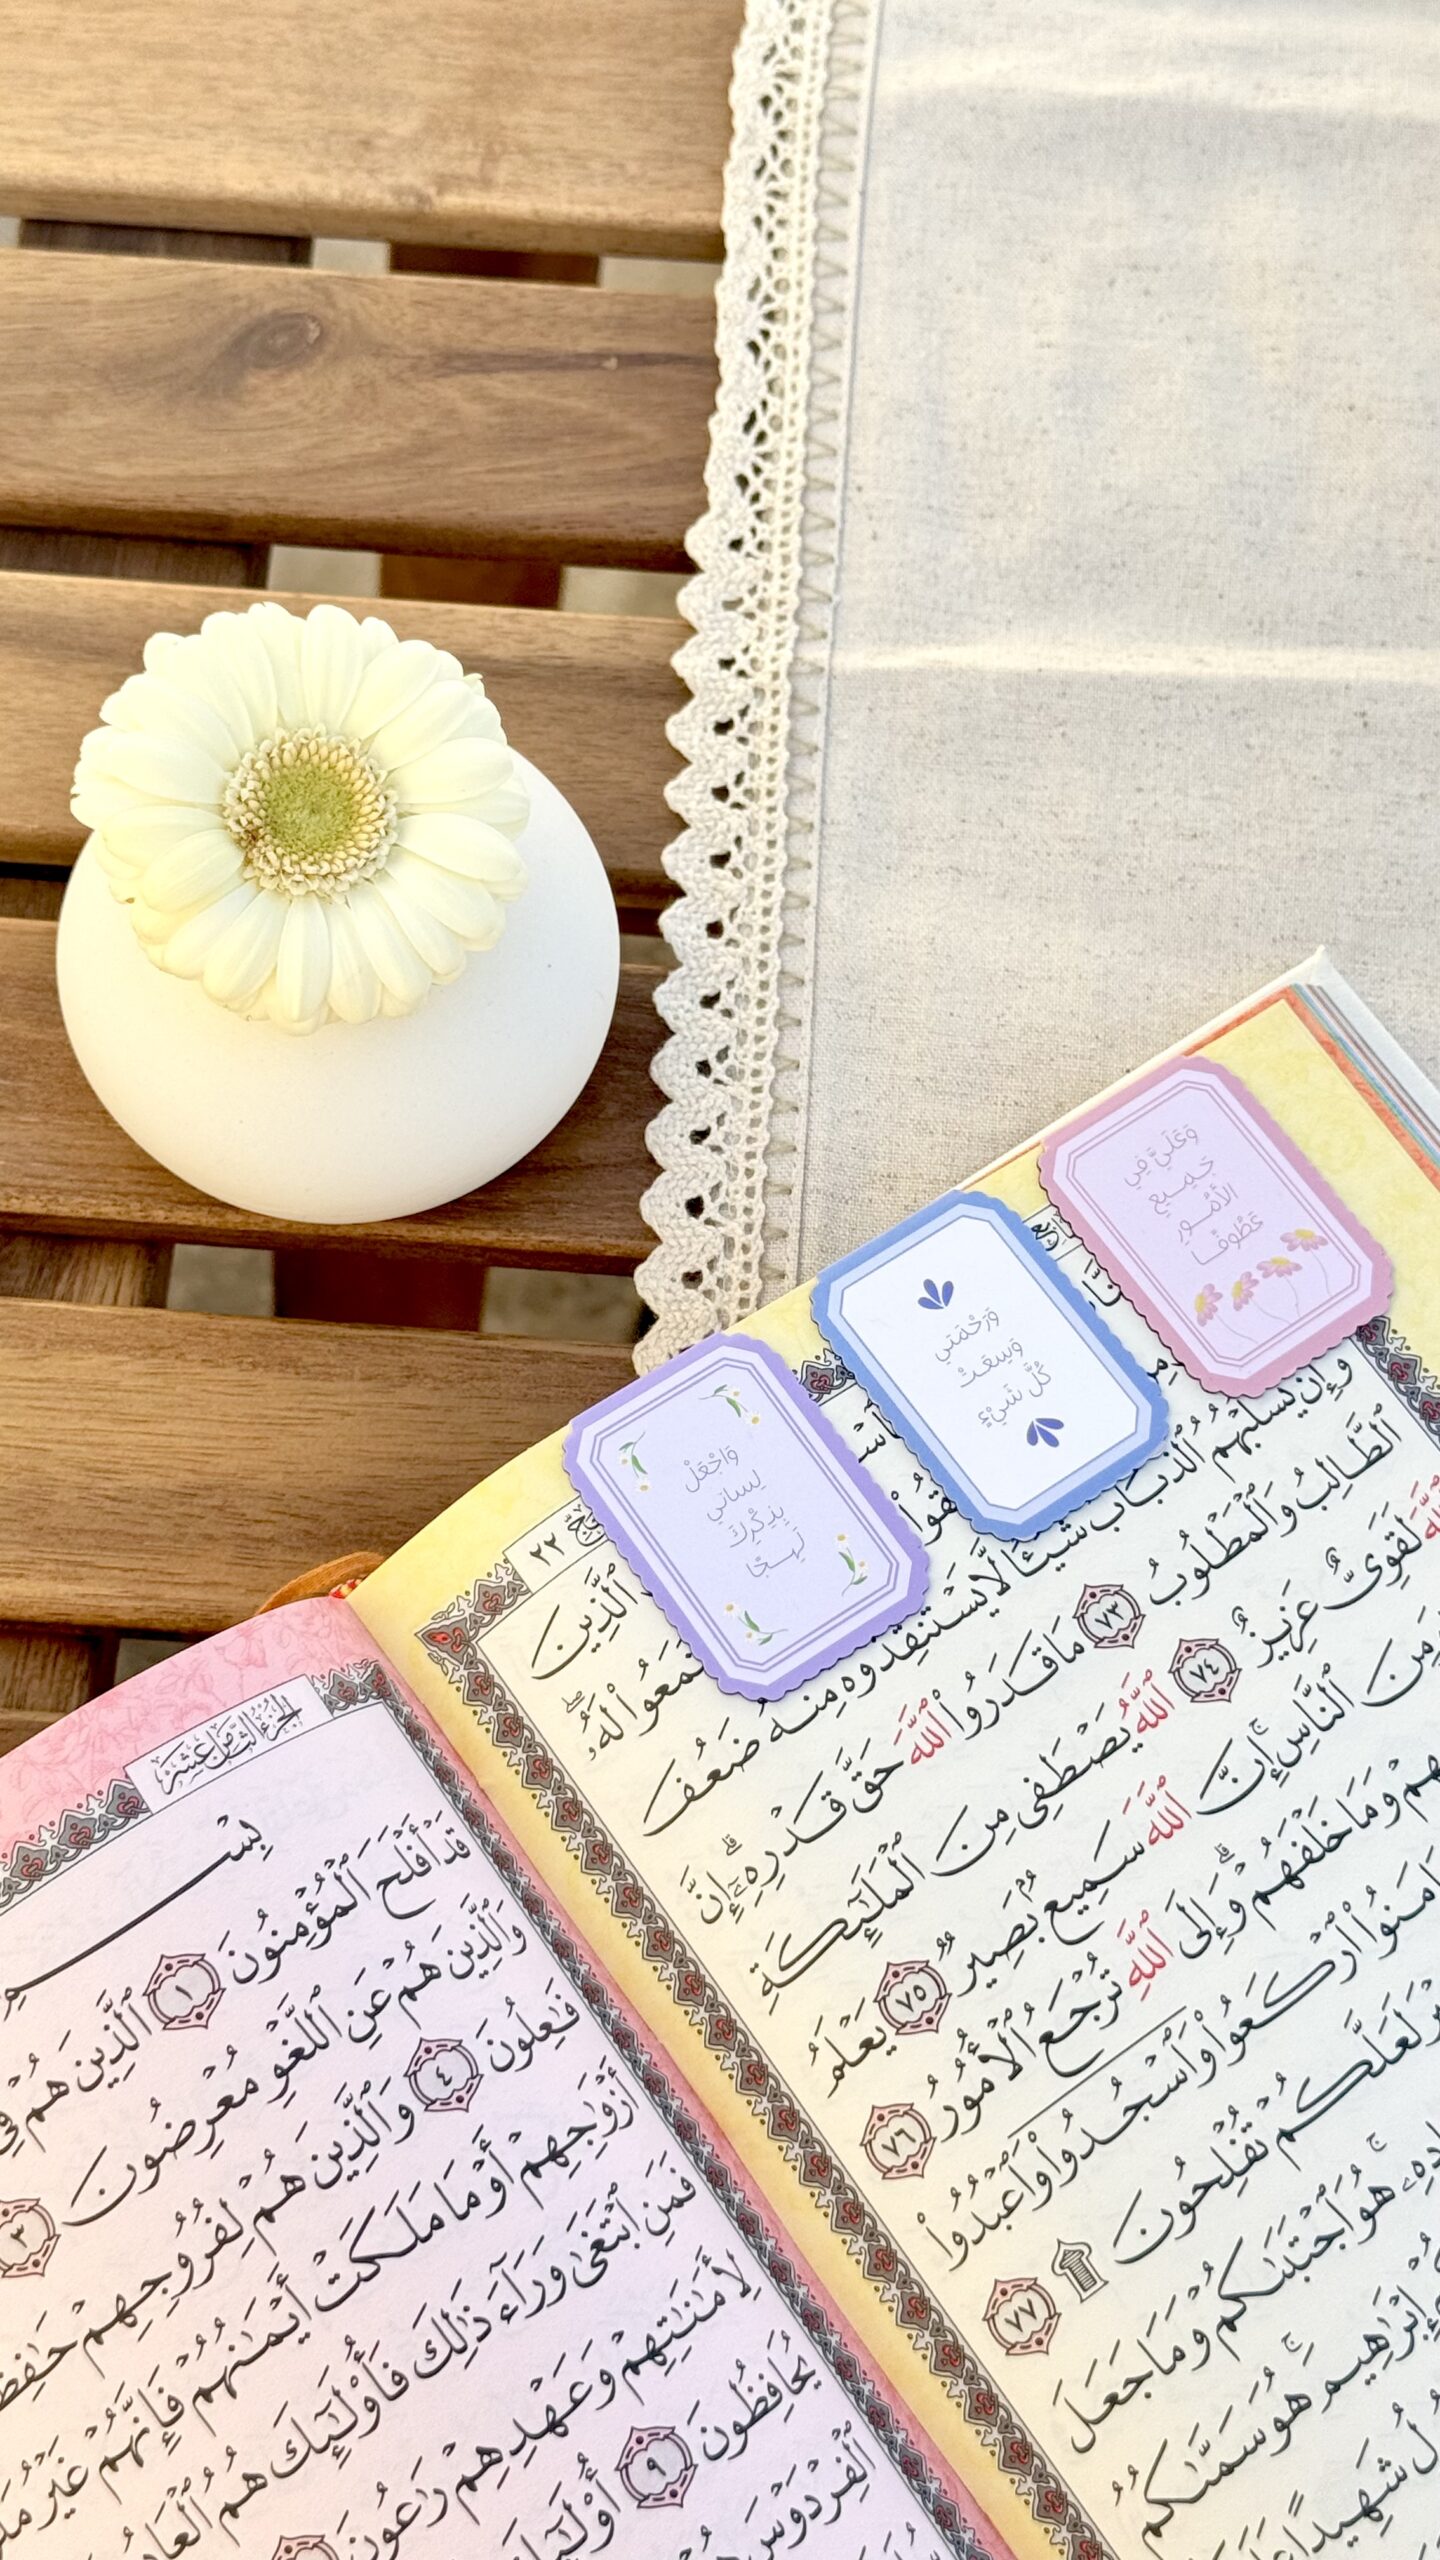 وَعَلَيَّ فِي
جَمِيعِ
الأُمُورِ
عَطُوفًا
وَرَحْمَتِي
وَسِعَتْ
كُلَّ شَيْءٍ
وَاجْعَلْ
لِسَانِي
بِذِكْرِكَ
لَهِجًا
٢٢
ٱلَّذِينَ
وَإِن يَسْلُبْهُمُ ٱلذُّبَابُ شَيْـًٔا لَّا يَسْتَنقِذُوهُ مِنْهُ ضَعُفَ
ٱلطَّالِبُ وَٱلْمَطْلُوبُ ٧٣ مَا قَدَرُوا۟ ٱللَّهَ حَقَّ قَدْرِهِۦٓ ۗ إِنَّ
ٱللَّهَ لَقَوِىٌّ عَزِيزٌ ٧٤ ٱللَّهُ يَصْطَفِى مِنَ ٱلْمَلَـٰٓئِكَةِ
وَمِنَ ٱلنَّاسِ ۚ إِنَّ ٱللَّهَ سَمِيعٌۢ بَصِيرٌ ٧٥ يَعْلَمُ
وَمَا خَلْفَهُمْ ۗ وَإِلَى ٱللَّهِ تُرْجَعُ ٱلْأُمُورُ ٧٦
ٱرْكَعُوا۟ وَٱسْجُدُوا۟ وَٱعْبُدُوا۟
لَعَلَّكُمْ تُفْلِحُونَ ۩ ٧٧
هُوَ ٱجْتَبَىٰكُمْ وَمَا جَعَلَ
إِبْرَٰهِيمَ ۚ هُوَ سَمَّىٰكُمُ
شَهِيدًا
الجزء الثامن عشر
بِسْمِ
قَدْ أَفْلَحَ ٱلْمُؤْمِنُونَ ١ ٱلَّذِينَ هُمْ فِى
وَٱلَّذِينَ هُمْ عَنِ ٱللَّغْوِ مُعْرِضُونَ ٣
فَـٰعِلُونَ ٤ وَٱلَّذِينَ هُمْ لِفُرُوجِهِمْ
أَزْوَٰجِهِمْ أَوْ مَا مَلَكَتْ أَيْمَـٰنُهُمْ فَإِنَّهُمْ غَيْرُ
فَمَنِ ٱبْتَغَىٰ وَرَآءَ ذَٰلِكَ فَأُو۟لَـٰٓئِكَ هُمُ ٱلْعَادُونَ
لِأَمَـٰنَـٰتِهِمْ وَعَهْدِهِمْ رَٰعُونَ
يُحَافِظُونَ ٩
ٱلْفِرْدَوْسَ